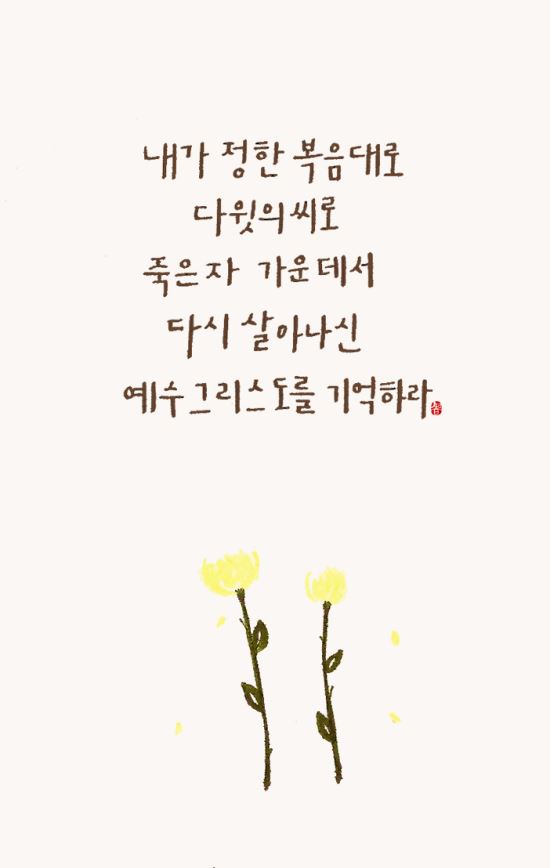 내가 정한 복음대로
다윗의 씨로
죽은 자 가운데서
다시 살아나신
예수 그리스도를 기억하라